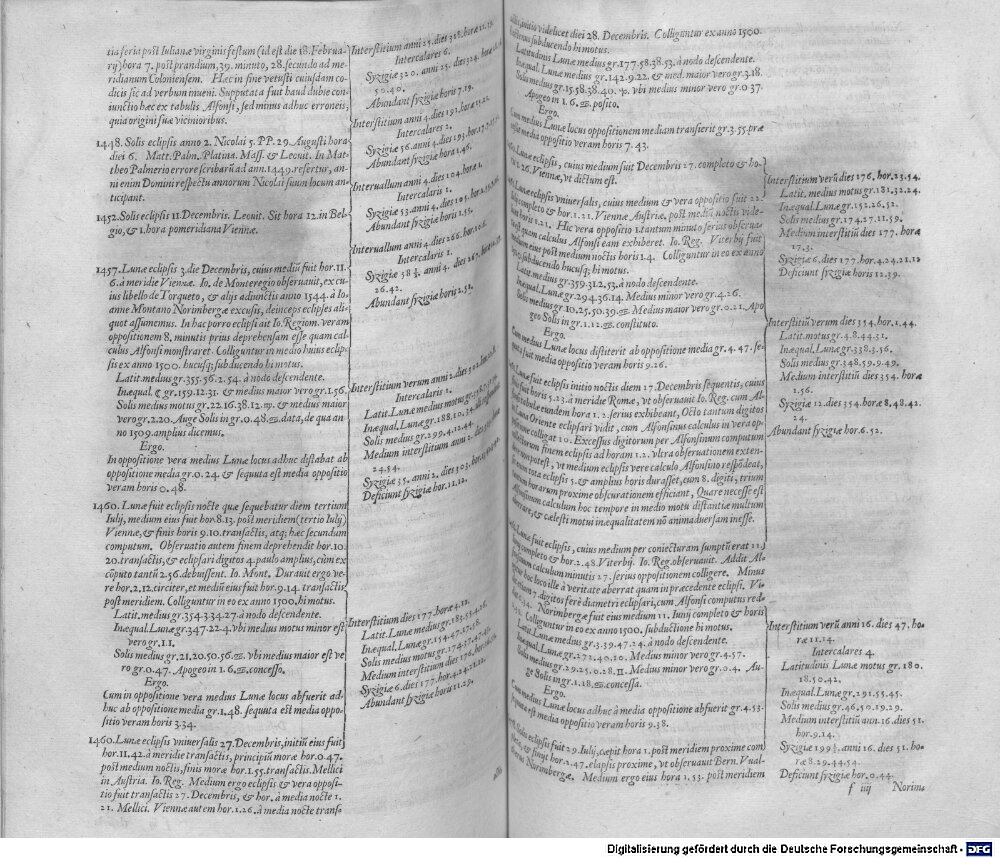 tia feria post Iulianæ virginis festum (id est die 18. Februa-
rij) hora 7. post prandium, 39. minuto, 28. secundo ad me-
ridianum Coloniensem. Hæc in fine vetusti cuiusdam co-
dicis sic ad verbum inueni. Supputata fuit haud dubie con-
iunctio hæc ex tabulis Alfonsi, sed minus adhuc erroneis,
quia origini suæ vicinioribus.
1448. Solis eclipsis anno 2. Nicolai 5. PP. 29. Augusti hora
diei 6. Matt. Palm. Platina. Mass. & Leouit. In Mat-
theo Palmerio errore scribarū ad ann. 1449. refertur, an-
ni enim Domini respectu annorum Nicolai suum locum an-
ticipant.
1452. Solis eclipsis 11. Decembris. Leouit. Sit hora 12. in Bel-
gio, & 1. hora pomeridiana Viennæ.
1457. Lunæ eclipsis 3. die Decembris, cuius mediū fuit hor. 11.
6. à meridie Viennæ. Io. de Monteregio obseruauit, ex cu-
ius libello de Torqueto, & alijs adiunctis anno 1544. à Io-
anne Montano Norimbergæ excusis, deinceps eclipses ali-
quot assumemus. In hac porro eclipsi ait Io. Regiom. veram
oppositionem 8. minutis prius deprehensam esse quam cal-
culus Alfonsi monstraret. Colliguntur in medio huius eclip-
sis ex anno 1500. hucusq; subducendo hi motus.
Latit. medius gr. 355. 56. 2. 54. à nodo descendente.
Inæqual. ☾ gr. 159. 12. 31. & medius maior vero gr. 1. 56.
Solis medius motus gr. 22. 16. 38. 12. ♍. & medius maior
vero gr. 2. 20. Auge Solis in gr. 0. 48. ♋. data, de qua an-
no 1509. amplius dicemus.
Ergo.
In oppositione vera medius Lunæ locus adhuc distabat ab
oppositione media gr. 0. 24. & sequuta est media oppositio
veram horis 0. 48.
1460. Lunæ fuit eclipsis nocte quæ sequebatur diem tertium
Iulij, medium eius fuit hor. 8. 13. post meridiem (tertio Iulij)
Viennæ, & finis horis 9. 10. transactis, atq; hæc secundum
computum. Obseruatio autem finem deprehendit hor. 10.
20. transactis, & eclipsari digitos 4. paulo amplius, cùm ex
cōputo tantū 2. 56. debuissent. Io. Mont. Durauit ergo ve-
re hor. 2. 12. circiter, et mediū eius fuit hor. 9. 14. transactis
post meridiem. Colliguntur in eo ex anno 1500. hi motus.
Latit. medius gr. 354. 3. 34. 27. à nodo descendente.
Inæqual. Lunæ gr. 347. 22. 4. vbi medius motus minor est
vero gr. 1. 1.
Solis medius gr. 21. 20. 50. 56. ♋. vbi medius maior est ve-
ro gr. 0. 47. Apogeo in 1. 6. ♋. concesso.
Ergo.
Cum in oppositione vera medius Lunæ locus abfuerit ad-
huc ab oppositione media gr. 1. 48. sequuta est media oppo-
sitio veram horis 3. 34.
1460. Lunæ eclipsis vniuersalis 27. Decembris, initiū eius fuit
hor. 11. 42. à meridie transactis, principiū moræ hor. 0. 47.
post medium noctis, finis moræ hor. 1. 55. transactis. Mellici
in Austria. Io. Reg. Medium ergo eclipsis & vera opposi-
tio fuit transactis 27. Decembris, & hor. à media nocte 1.
21. Mellici. Viennæ autem hor. 1. 26. à media nocte transa-
Interstitium anni 25. dies 318. horæ 11. 19.
Intercalares 6.
Syzigiæ 320. anni 25. dies 324.
50. 40.
Abundant syzigiæ horis 7. 19.
Interstitium anni 4. dies 191. horæ 15. 21.
Intercalares 2.
Syzigiæ 56. anni 4. dies 193.
Abundant syzigiæ hor. 1. 46.
Interuallum anni 4. dies 104. horæ 1.
Intercalaris 1.
Syzigiæ 53. anni 4. dies 105.
Abundant syzigiæ horis 1. 55.
Interuallum anni 4. dies 266. hor.
Intercalaris 1.
Syzigiæ 58 ½. anni 4. dies 267.
26. 42.
Abundant syzigiæ horis 2. 52.
Interstitium verum anni 2. dies 302.
Intercalares 1.
Latit. Lunæ medius motus gr. 358.
Inæqual. Lunæ gr. 188. 10. 34.
Solis medius gr. 299. 4. 12. 44.
Medium interstitium anni 2. dies
24. 54.
Syzigiæ 35. anni 2. dies 303.
Deficiunt syzigiæ hor. 11. 12.
Interstitium dies 177. horæ 4. 12.
Latit. Lunæ medius gr. 185.
Inæqual. Lunæ gr. 154. 47.
Solis medius motus 174.
Medium interstitium dies 176.
Syzigiæ 6. dies 177. hor. 4. 21. 12.
Abundant syzigiæ horis 11. 29.
initio videlicet diei 28. Decembris. Colliguntur ex anno 1500.
subducendo hi motus.
Latitudinis Lunæ medius gr. 177. 58. 38. 53. à nodo descendente.
Inæqual. Lunæ medius gr. 142. 9. 22. & med. maior vero gr. 3. 18.
Solis medius gr. 15. 58. 38. 40. ♑. vbi medius minor vero gr. 0. 37.
Apogeo in 1. 6. ♋. posito.
Ergo.
Cum medius Lunæ locus oppositionem mediam transierit gr. 3. 55. præ
media oppositio veram horis 7. 43.
Lunæ eclipsis, cuius medium fuit Decembris 27. completo & ho-
1. 26. Viennæ, vt dictum est.
Lunæ eclipsis vniuersalis, cuius medium & vera oppositio fuit 22.
completo & hor. 1. 21. Viennæ Austriæ. post mediū noctis vide-
horis 1. 21. Hic vera oppositio 1. tantum minuto serius obserua-
est quam calculus Alfonsi eam exhiberet. Io. Reg. Viterbij fuit
medium eius post medium noctis horis 1. 4. Colliguntur in eo ex anno
subducendo hucusq; hi motus.
Latit. medius gr. 359. 31. 2. 53. à nodo descendente.
Inæqual. Lunæ gr. 294. 36. 14. Medius minor vero gr. 4. 26.
Solis medius gr. 10. 25. 50. 39. ♋. Medius maior vero gr. 0. 21. Apo-
geo Solis in gr. 1. 12. ♋. constituto.
Ergo.
Cum medius Lunæ locus distiterit ab oppositione media gr. 4. 47. se-
quuta fuit media oppositio veram horis 9. 26.
Lunæ fuit eclipsis initio noctis diem 17. Decembris sequentis, cuius
fuit horis 5. 23. à meridie Romæ, vt obseruauit Io. Reg. cum Al-
tabulæ eundem hora 1. 2. serius exhibeant, Octo tantum digitos
Luna Oriente eclipsari vidit, cum Alfonsinus calculus in vera op-
positione colligat 10. Excessus digitorum per Alfonsinum computum
finem eclipsis ad horam 1. 2. vltra obseruationem exten-
potest, vt medium eclipsis vere calculo Alfonsino respōdeat,
tota eclipsis 5. & amplius horis durasset, cum 8. digiti, trium
horarum proxime obscurationem efficiant, Quare necesse est
Alfonsinum calculum hoc tempore in medio motu distantiæ multum
errare, & cælesti motui inæqualitatem nō animaduersam inesse.
Lunæ fuit eclipsis, cuius medium per coniecturam sumptū erat 11. I
completo & hor. 2. 48. Viterbij. Io. Reg. obseruauit. Addit Al-
fonsinum calculum minutis 27. serius oppositionem colligere. Minus
hoc loco ille à veritate aberrat quam in præcedente eclipsi. Vi-
7. digitos fere diametri eclipsari, cum Alfonsi computus red-
34. Norimbergæ fuit eius medium 11. Iunij completo & horis
Colliguntur in eo ex anno 1500. subductione hi motus.
Latit. Lunæ medius gr. 3. 39. 47. 24. à nodo descendente.
Inæqual. Lunæ gr. 272. 40. 10. Medius minor vero gr. 4. 57.
Solis medius gr. 29. 25. 0. 28. ♊. Medius minor vero gr. 0. 4. Au-
ge Solis in gr. 1. 18. ♋. concessa.
Ergo.
Cum medius Lunæ locus adhuc à media oppositione abfuerit gr. 4. 53.
sequuta est media oppositio veram horis 9. 38.
Solis eclipsis fuit 29. Iulij, cæpit hora 1. post meridiem proxime com-
& finijt hor. 2. 47. elapsis proxime, vt obseruauit Bern. Vual-
Norimbergæ. Medium ergo eius hora 1. 53. post meridiem
Interstitium verū dies 176. hor. 23. 54.
Latit. medius motus gr. 181. 32. 24.
Inæqual. Lunæ gr. 152. 26. 52.
Solis medius gr. 174. 27. 11. 59.
Medium interstitiū dies 177. horæ
17. 3.
Syzigiæ 6. dies 177. hor. 4. 24. 21. 12
Deficiunt syzigiæ horis 12. 39.
Interstitiū verum dies 354. hor. 1. 44.
Latit. motus gr. 4. 8. 44. 31.
Inæqual. Lunæ gr. 338. 3. 56.
Solis medius gr. 348. 59. 9. 49.
Medium interstitiū dies 354. horæ
1. 56.
Syzigiæ 12. dies 354. horæ 8. 48. 42.
24.
Abundant syzigiæ hor. 6. 52.
Interstitiū verū anni 16. dies 47. ho-
ræ 11. 14.
Intercalares 4.
Latitudinis Lunæ motus gr. 180.
18. 50. 42.
Inæqual. Lunæ gr. 291. 55. 45.
Solis medius gr. 46. 50. 19. 29.
Medium interstitiū ann. 16. dies 51.
hor. 9. 14.
Syzigiæ 199 ½. anni 16. dies 51. ho-
ræ 8. 29. 44. 54.
Deficiunt syzigiæ hor. 0. 44.
f iiij Norim-
Digitalisierung gefördert durch die Deutsche Forschungsgemeinschaft - DFG